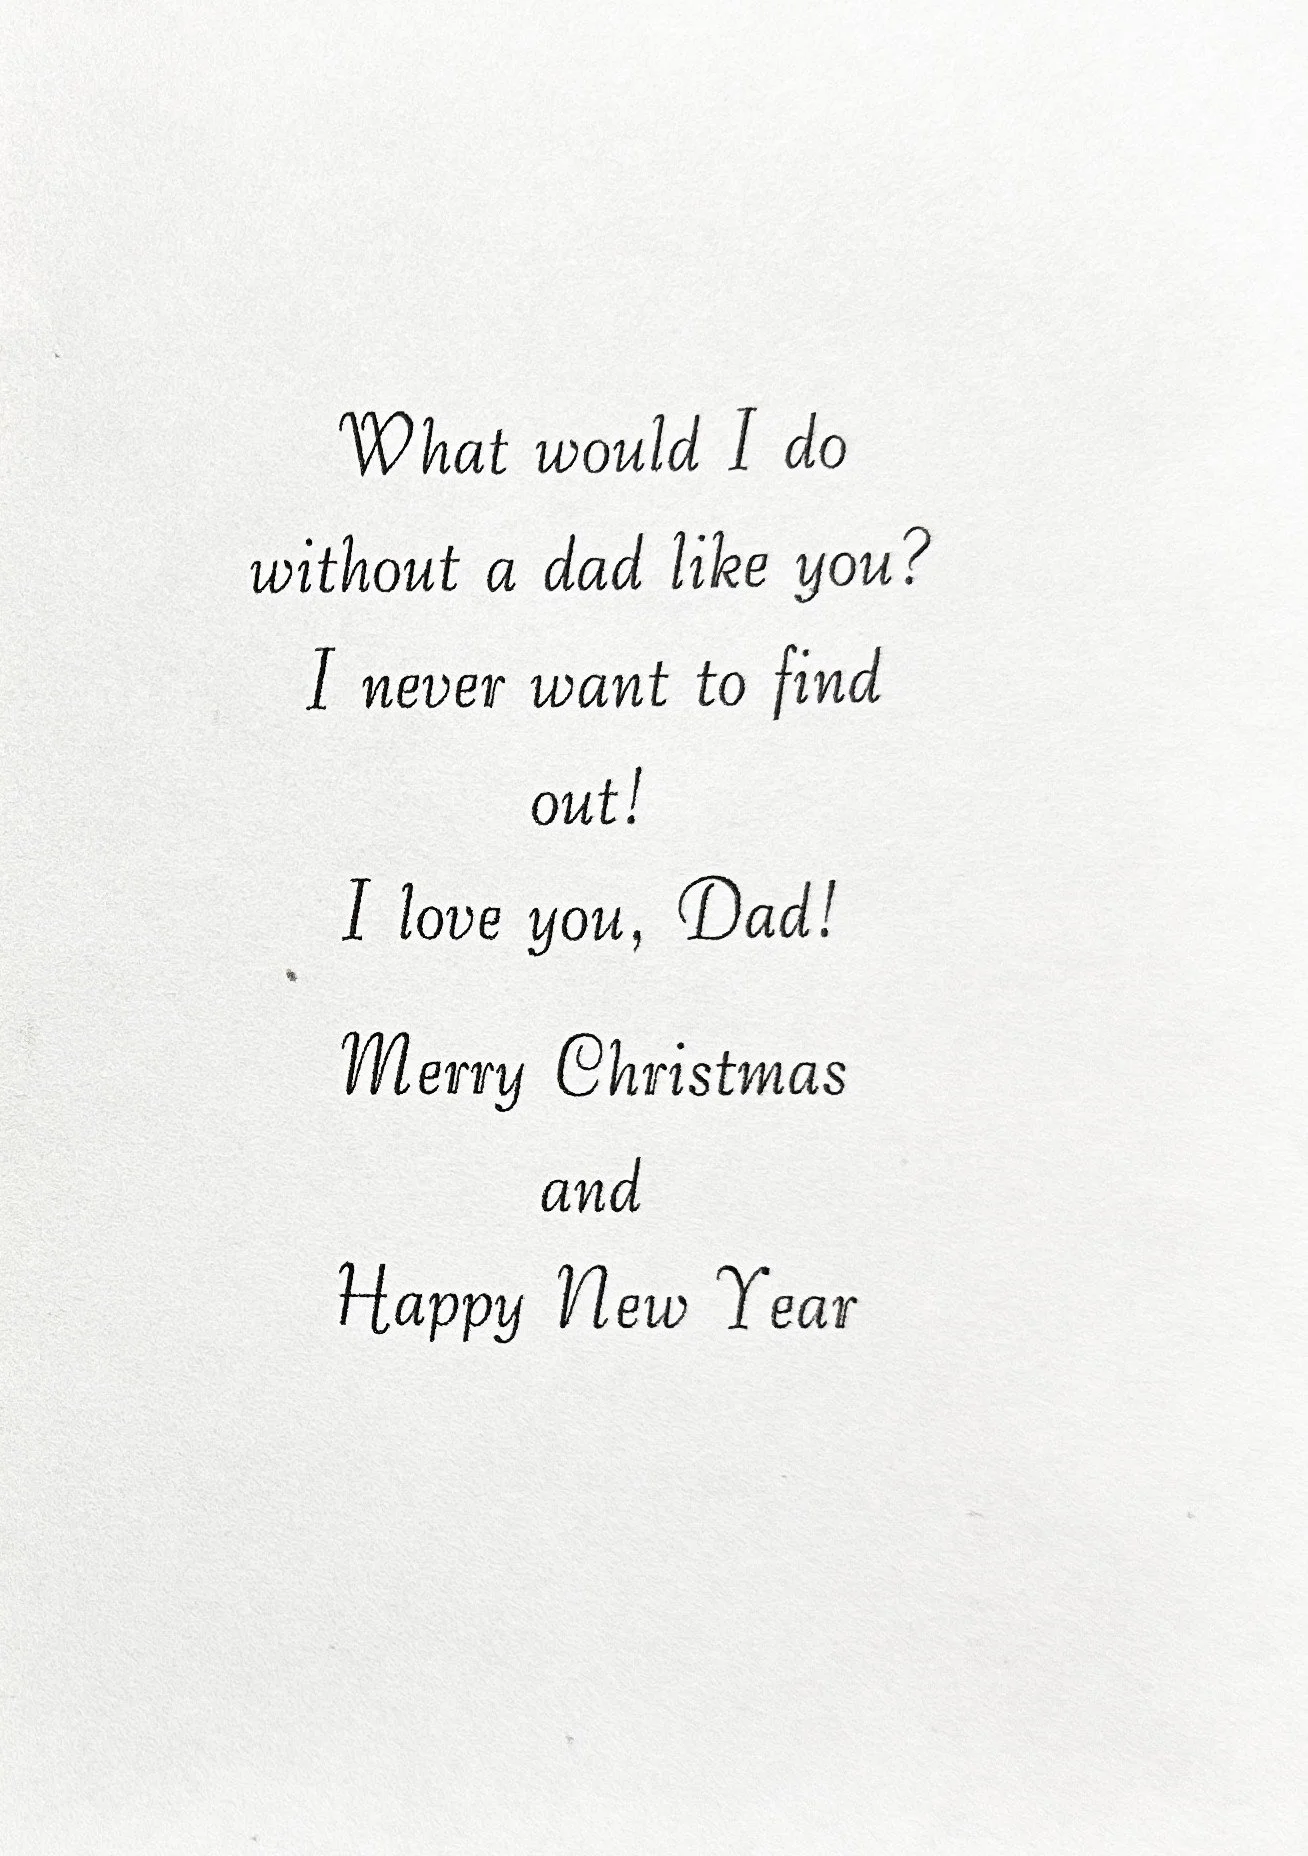 What would I do
without a dad like you?
I never want to find
out!
I love you, Dad!
Merry Christmas
and
Happy New Year